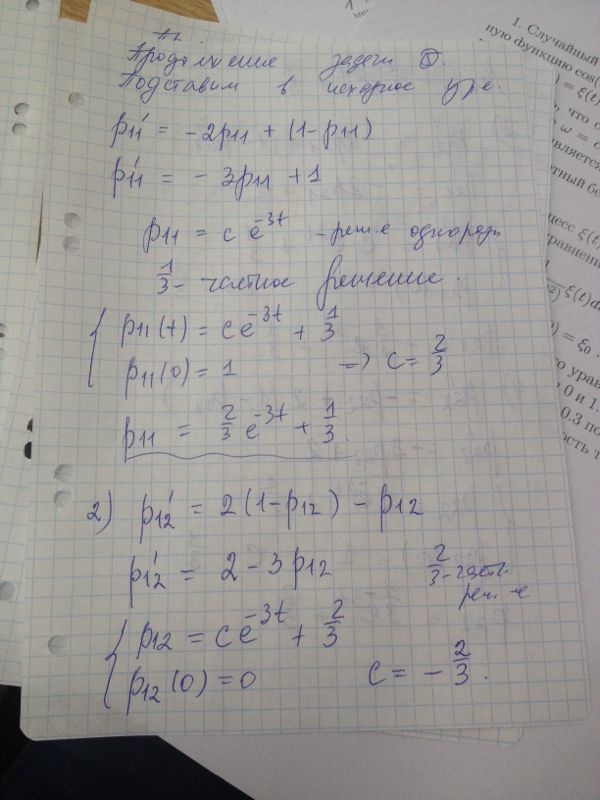 Продолжение задачи
Подставим в исходное ур-е.
p11' = -2p11 + (1-p11)
p11' = - 3p11 + 1
p11 = c e^-3t - реш-е однород
1/3 - частное решение.
p11(t) = ce^-3t + 1/3
p11(0) = 1 => c = 2/3
p11 = 2/3 e^-3t + 1/3.
2) p12' = 2(1-p12) - p12
p12' = 2 - 3p12
2/3 - частн.
реш-е
p12 = ce^-3t + 2/3
p12(0) = 0 c = - 2/3.
1. Случайный
ную функцию cos(
) = ξ(t)
, что
ω = c
является
цесс ξ(t)
уравнени
ξ(t)d
) = ξ0.
о урав
0 и 1.
0.3 по
ость т